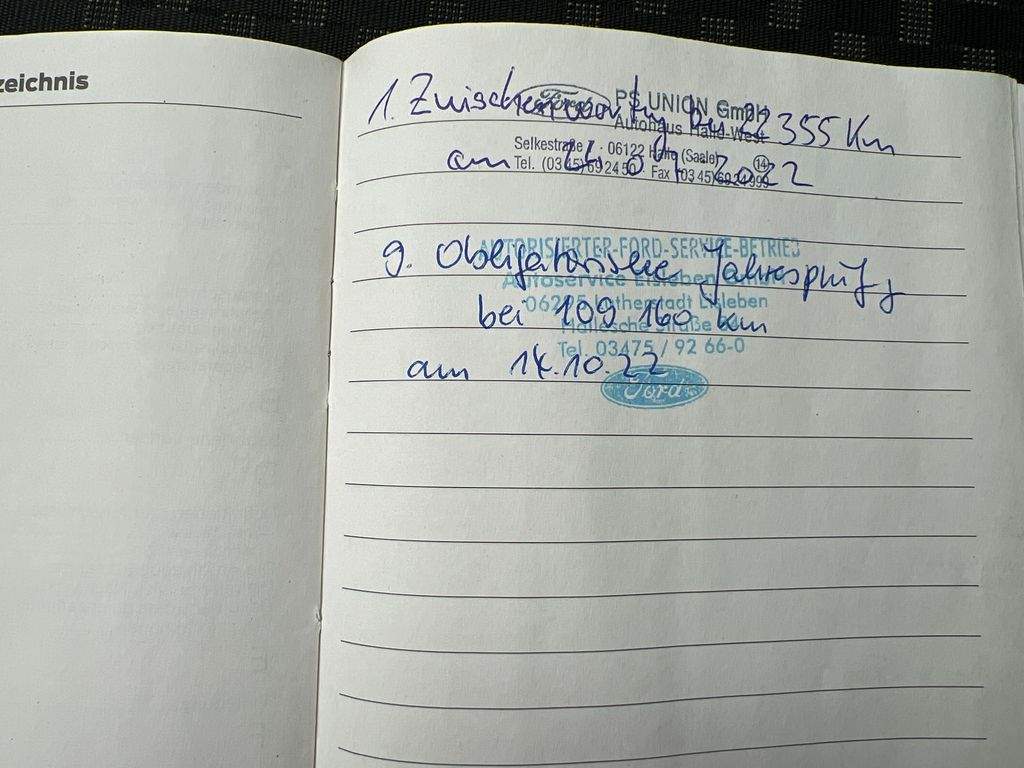 zeichnis
Ford PS UNION GmbH
Autohaus Halle-West
Selkestraße 7 · 06122 Halle (Saale)
Tel. (03 45) 69 24 50 · Fax (03 45) 69 24 999
14
1. Zwischenwartung bei 355 Km
am 2022
AUTORISIERTER-FORD-SERVICE-BETRIEB
Autoservice Eisleben GmbH
06295 Lutherstadt Eisleben
Hallesche Straße
Tel. 03475 / 92 66-0
Ford
9. Obligatorische Jahresprüfg
bei 109 160 km
am 14.10.22